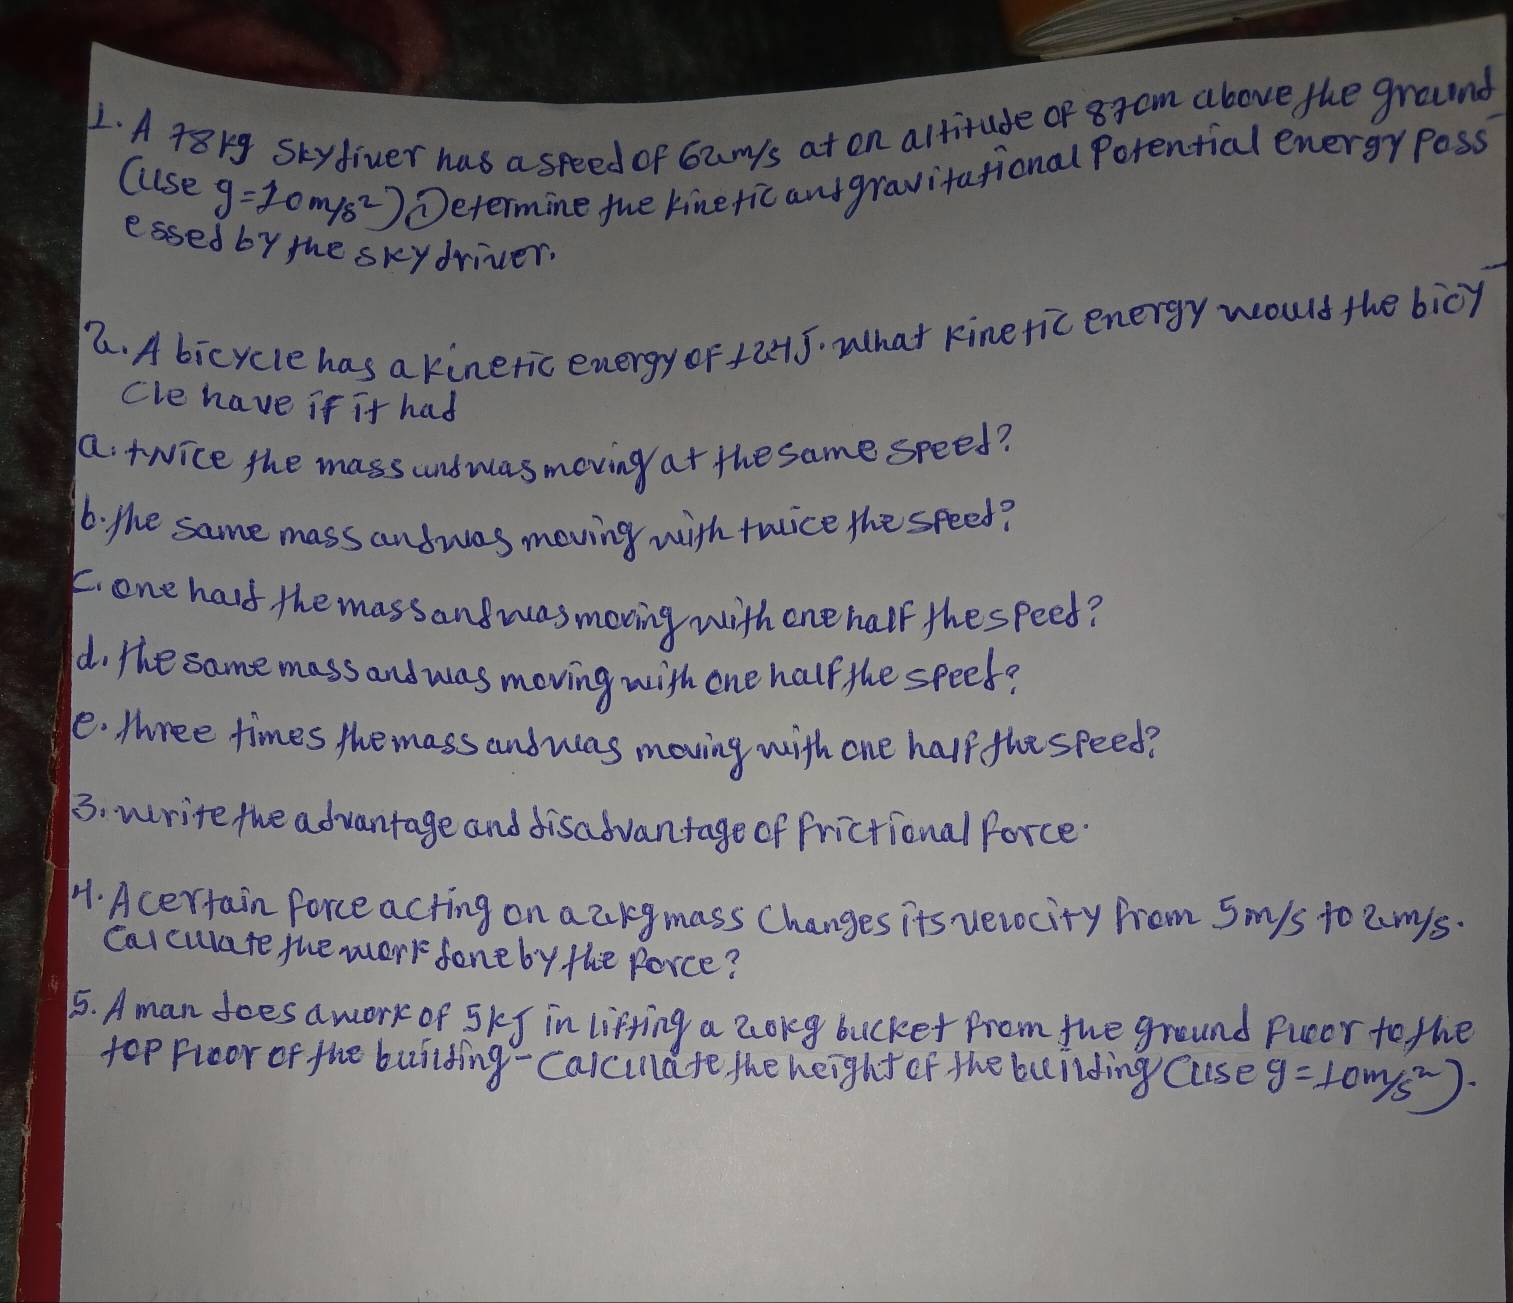 1. A 78kg skydiver has a speed of 62m/s at an altitude of 870m above the ground
(use g=10m/s²) Determine the kinetic and gravitational Potential energy poss
essed by the skydriver.
2. A bicycle has a kinetic energy of 124J. What kinetic energy would the bicy
cle have if it had
a. twice the mass and was moving at the same speed?
b. the same mass and was moving with twice the speed?
c. one half the mass and was moving with one half the speed?
d. the same mass and was moving with one half the speed?
e. three times the mass and was moving with one half the speed?
3. write the advantage and disadvantage of frictional force.
4. A certain force acting on a 2kg mass changes its velocity from 5m/s to 2m/s.
Calculate the work done by the force?
5. A man does a work of 5kJ in lifting a 20kg bucket from the ground floor to the
top floor of the building - Calculate the height of the building (use g=10m/s²).